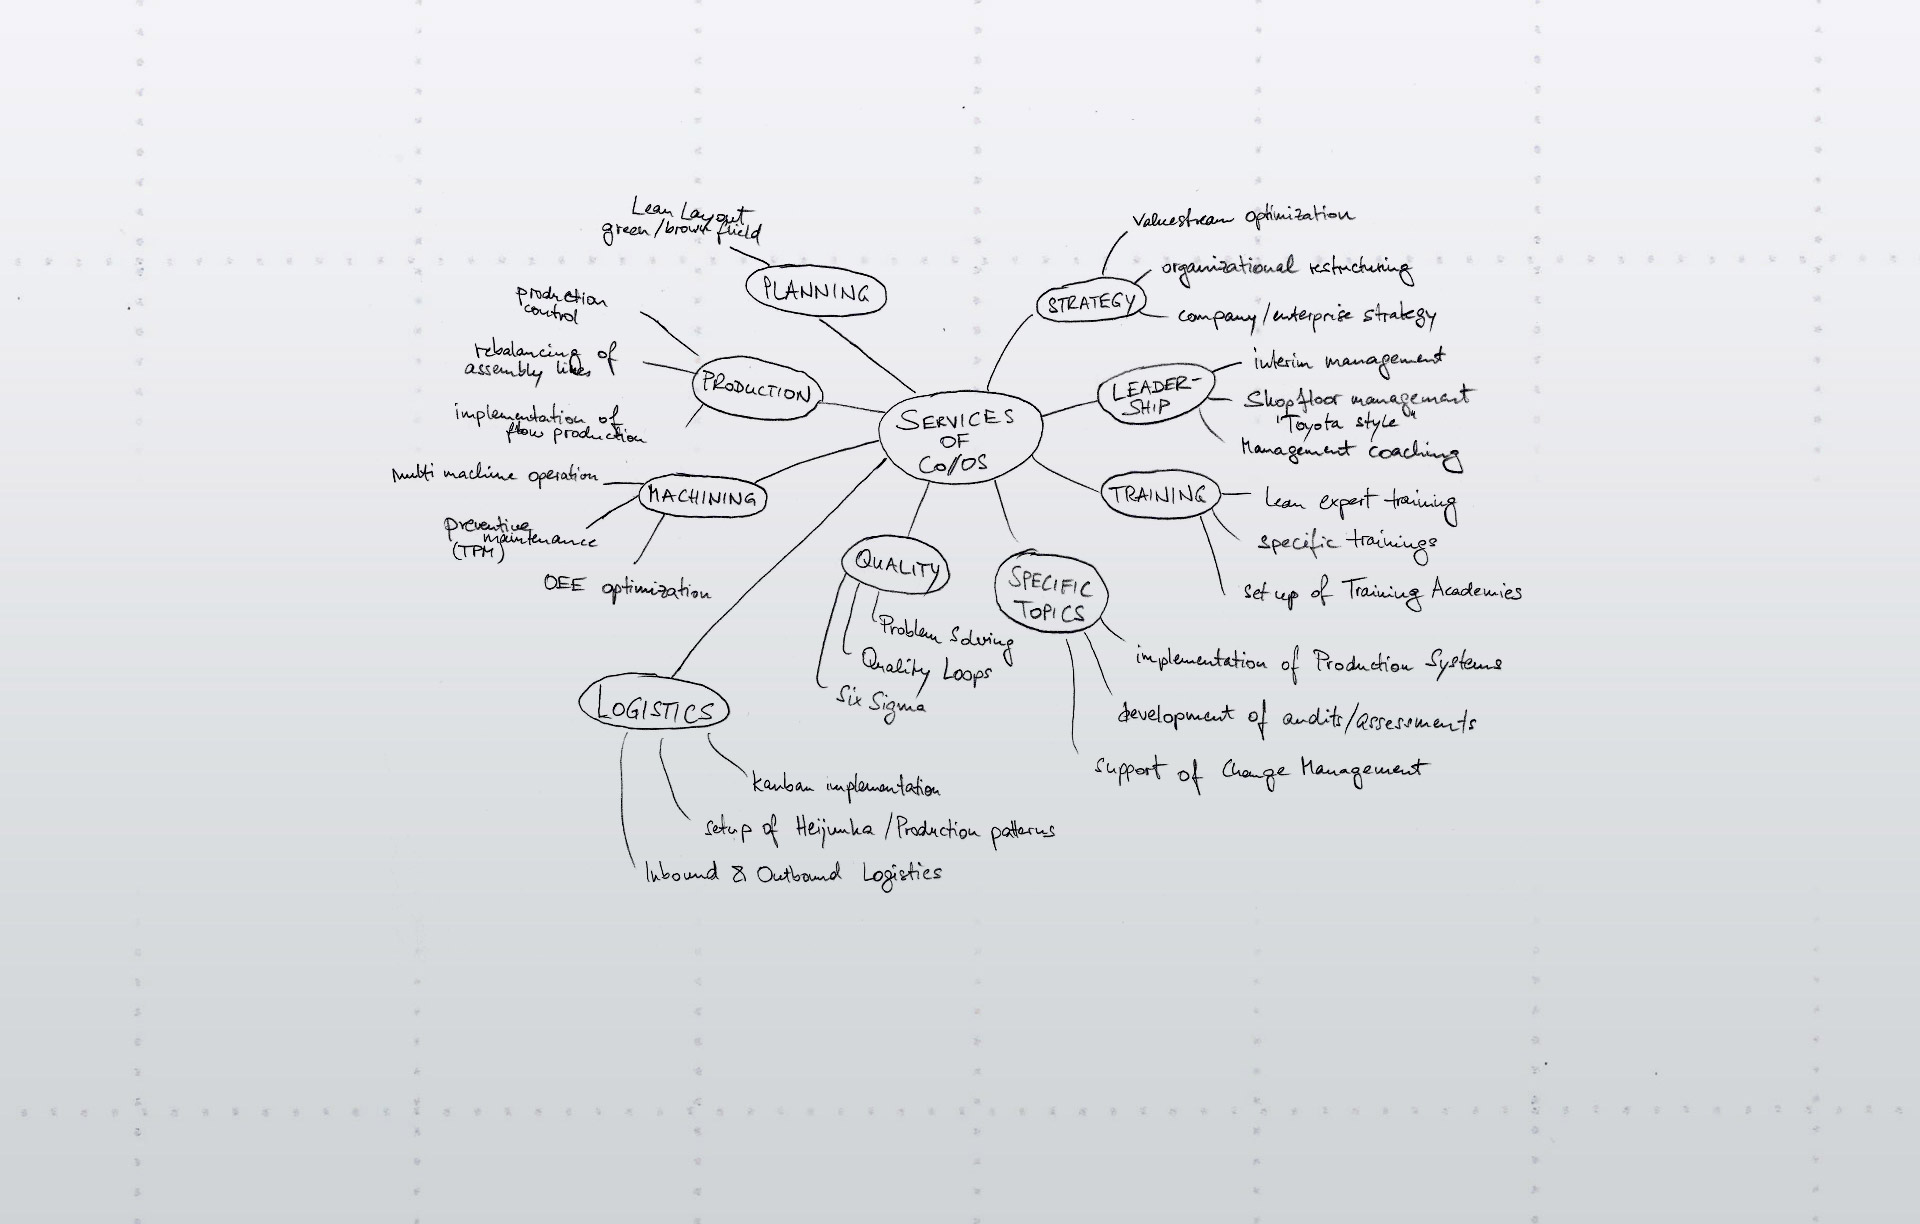 Lean Layout
green/brown field
PLANNING
production
control
rebalancing of
assembly lines
implementation of
flow production
PRODUCTION
multi machine operation
preventive
maintenance
(TPM)
OEE optimization
MACHINING
SERVICES
OF
CO/OS
valuestream optimization
organizational restructuring
company/enterprise strategy
STRATEGY
LEADER-
SHIP
interim management
Shopfloor management
"Toyota style"
Management coaching
TRAINING
Lean expert training
specific trainings
set up of Training Academies
QUALITY
Problem Solving
Quality Loops
Six Sigma
SPECIFIC
TOPICS
implementation of Production Systems
development of audits/assessments
support of Change Management
LOGISTICS
Kanban implementation
setup of Heijunka/Production patterns
Inbound & Outbound Logistics